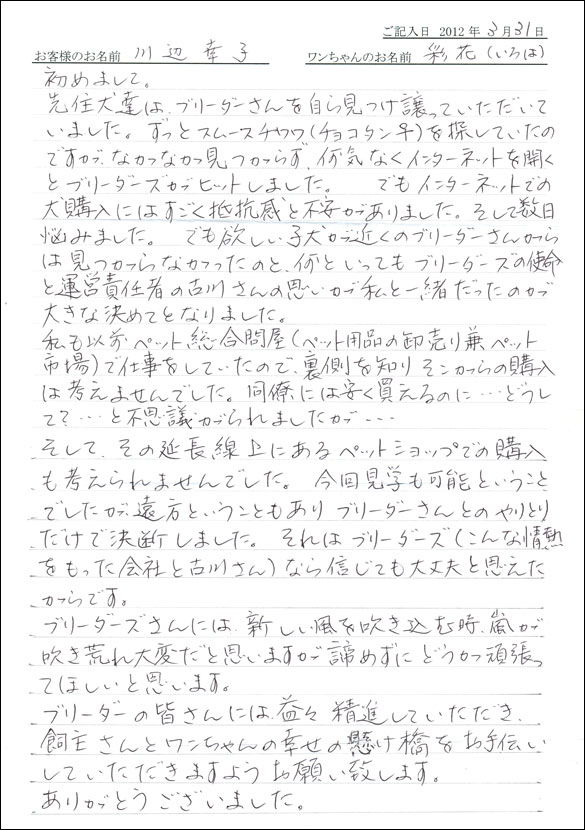 ご記入日 2012年 3月31日
お客様のお名前 川辺 幸子 ワンちゃんのお名前 彩花(いろは)
初めまして。
先住犬達は、ブリーダーさんを自ら見つけ譲っていただいて
いました。ずっとスムースチワワ(チョコタン♀)を探していたの
ですが、なかなか見つからず、何気なくインターネットを開く
とブリーダーズがヒットしました。 でもインターネットでの
犬購入にはすごく抵抗感と不安がありました。そして数日
悩みました。でも欲しい子犬が近くのブリーダーさんから
は見つからなかったのと、何といってもブリーダーズの使命
と運営責任者の古川さんの思いが私と一緒だったのが
大きな決めてとなりました。
私も以前ペット総合問屋(ペット用品の卸売り兼ペット
市場)で仕事をしていたので、裏側を知りそこからの購入
は考えませんでした。同僚には安く買えるのに…どうし
て?…と不思議がられましたが…
そして、その延長線上にあるペットショップでの購入
も考えられませんでした。今回見学も可能ということ
でしたが、遠方ということもありブリーダーさんとのやりとり
だけで決断しました。それはブリーダーズ(こんな情熱
をもった会社と古川さん)なら信じても大丈夫と思えた
からです。
ブリーダーズさんには、新しい風を吹き込む時、嵐が
吹き荒れ大変だと思いますが諦めずにどうか頑張っ
てほしいと思います。
ブリーダーの皆さんには、益々精進していただき、
飼主さんとワンちゃんの幸せの懸け橋をお手伝い
していただきますようお願い致します。
ありがとうございました。